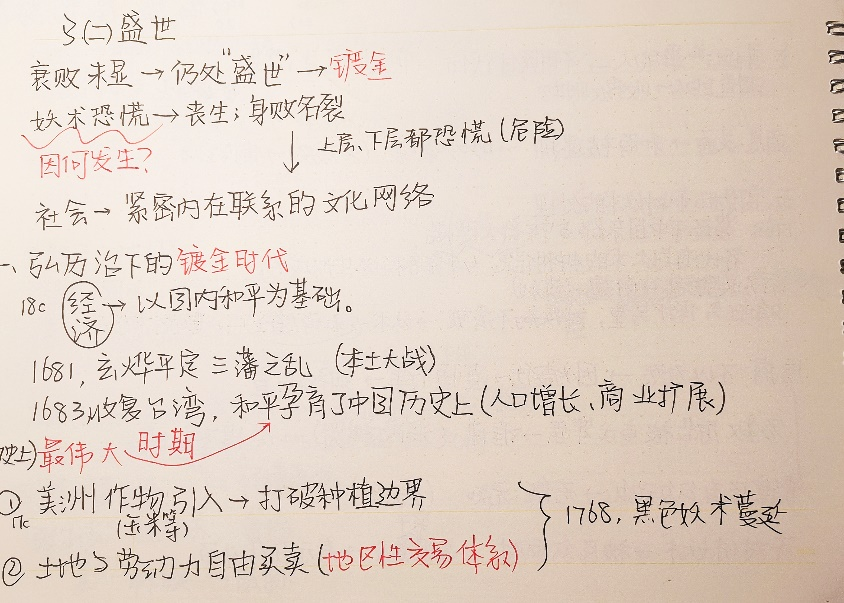 (二)盛世
衰败未显→仍处"盛世"→镀金
妖术恐慌→丧生;身败名裂
因何发生?
↓上层、下层都恐慌(危险)
社会→紧密内在联系的文化网络
一、弘历治下的镀金时代
18c 经济→以国内和平为基础。
1681,玄烨平定三藩之乱(本土大战)
1683,收复台湾,和平孕育了中国历史上(人口增长、商业扩展)
史上)最伟大时期
① 美洲作物引入→打破种植边界
17c (玉米等)
② 土地与劳动力自由买卖(地区性交易体系)
} 1768,黑色妖术蔓延